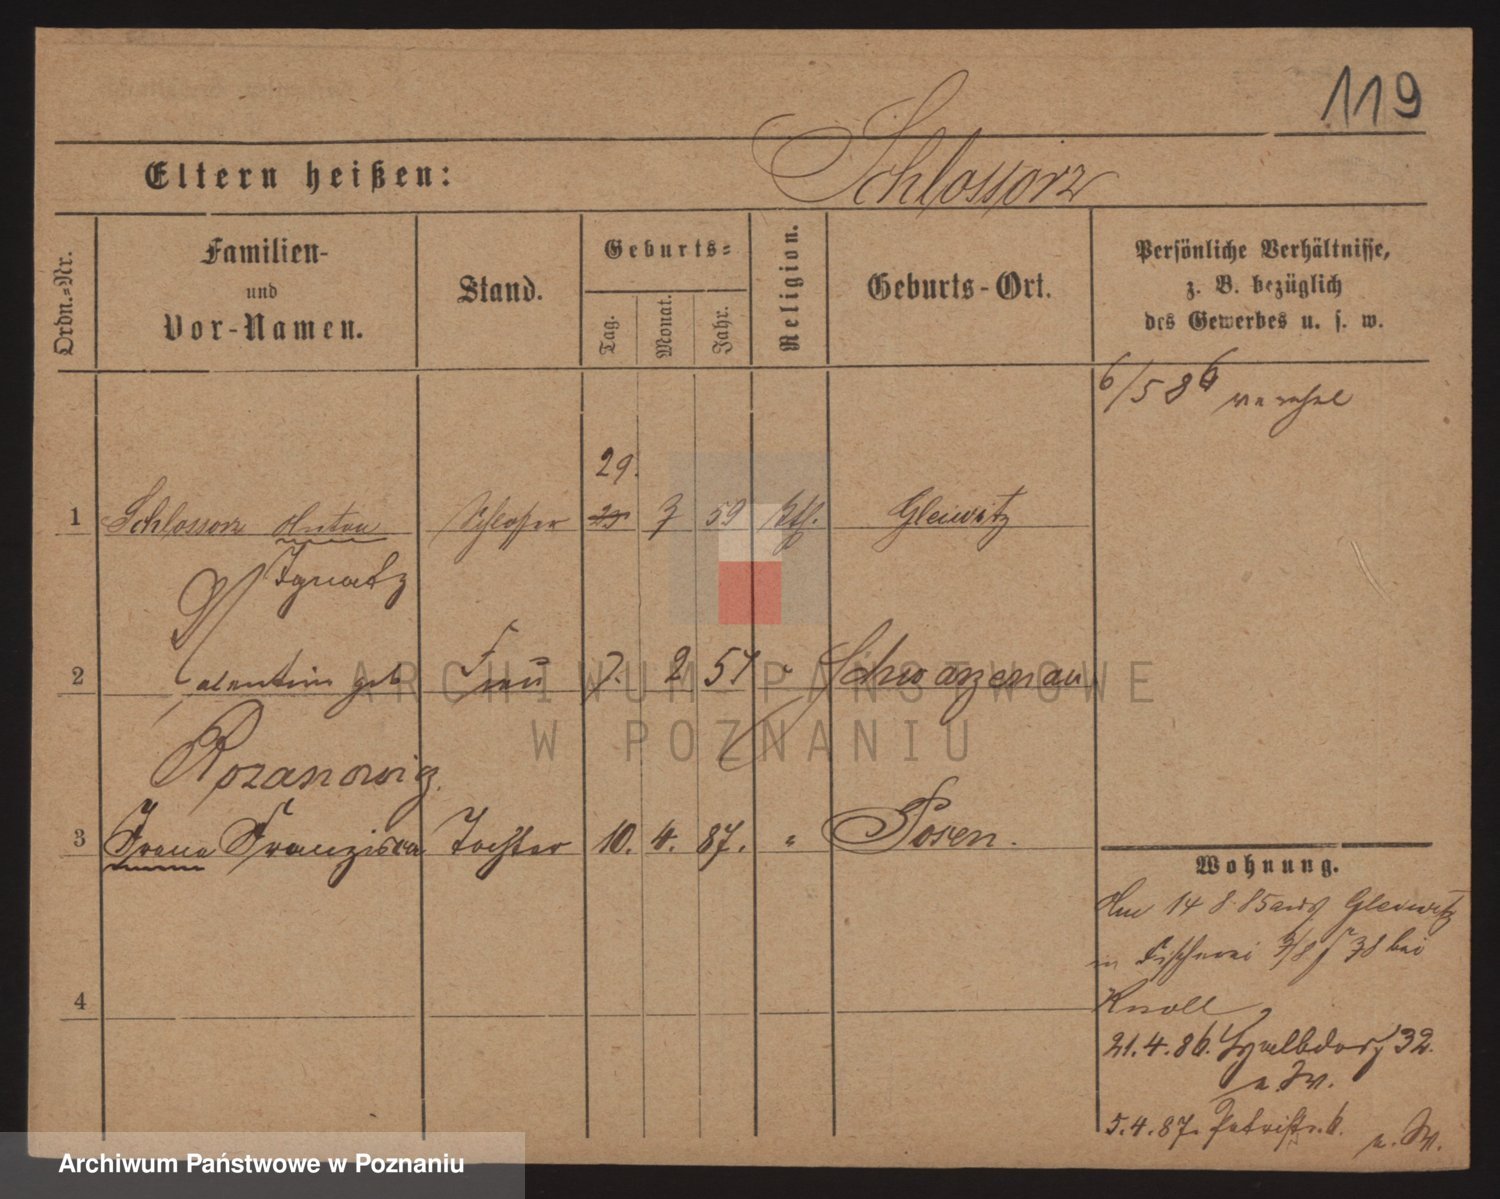 119
Eltern heißen: Schlossorz
Ordn.-Nr.
Familien-
und
Vor-Namen.
Stand.
Geburts-
Tag.
Monat.
Jahr.
Religion.
Geburts-Ort.
Persönliche Verhältnisse,
z. B. bezüglich
des Gewerbes u. s. w.
6/5 86
29.
1 Schlossorz Anton Schlosser 25 7 59 Kth. Gleiwitz
Ignatz
2 Valentine geb Frau 7. 2 57 " Schwarzenau
Rozanowicz
3 Irene Franziska Tochter 10. 4. 87. " Posen.
4
Wohnung.
Am 14 8 85 aus Gleiwitz
in Fischerei 7/8 38 bei
Knoll
21.4.86. 32.
5.4.87.
ARCHIWUM PAŃSTWOWE
W POZNANIU
Archiwum Państwowe w Poznaniu